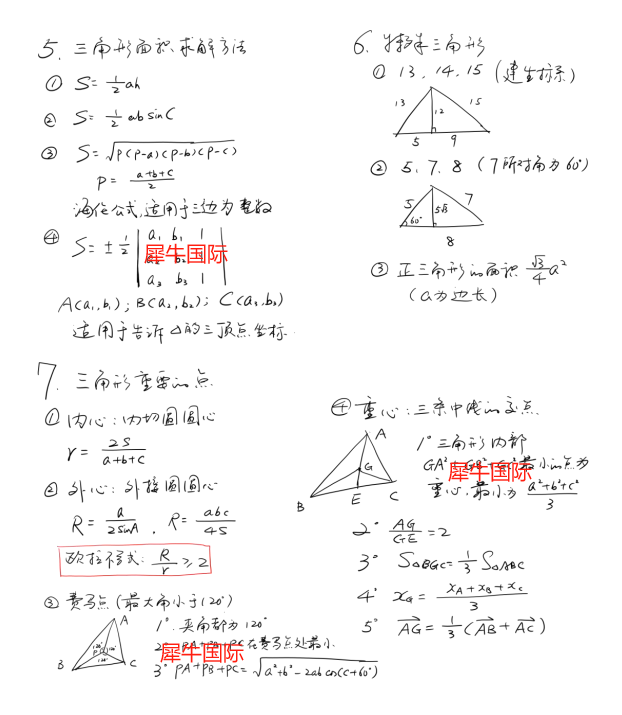 5. 三角形面积求解方法
① S= 1/2 ah
② S= 1/2 ab sinC
③ S= √P(P-a)(P-b)(P-c)
P= (a+b+c)/2
海伦公式,适用于三边为整数
④ S= ± 1/2 | a₁ b₁ 1
b₂
a₃ b₃ 1 |
犀牛国际
A(a₁,b₁); B(a₂,b₂); C(a₃,b₃)
适用于告诉△的三顶点坐标.
6. 特殊三角形
① 13, 14, 15 (建坐标系)
13 12 15
5 9
② 5, 7, 8 (7所对角为60°)
5 5√3 7
60°
8
③ 正三角形的面积 √3/4 a²
(a为边长)
7. 三角形重要的点
① 内心: 内切圆圆心
r= 2S/(a+b+c)
② 外心: 外接圆圆心
R= a/2sinA , R= abc/4S
欧拉不等式: R/r ≥2
③ 费马点 (最大角小于120°)
A
120° P 120°
120°
B C
1° 夹角都为120°
2° PA+PB+PC在费马点处最小
犀牛国际
3° PA+PB+PC= √a²+b²-2ab cos(C+60°)
④ 重心: 三条中线的交点
A
G
B E C
1° 三角形内部
GA² GB² GC²最小的点为
犀牛国际
重心,最小为 (a²+b²+c²)/3
2° AG/GE =2
3° S△BGC= 1/3 S△ABC
4° x_G = (x_A+x_B+x_C)/3
5° AG→= 1/3 (AB→+AC→)